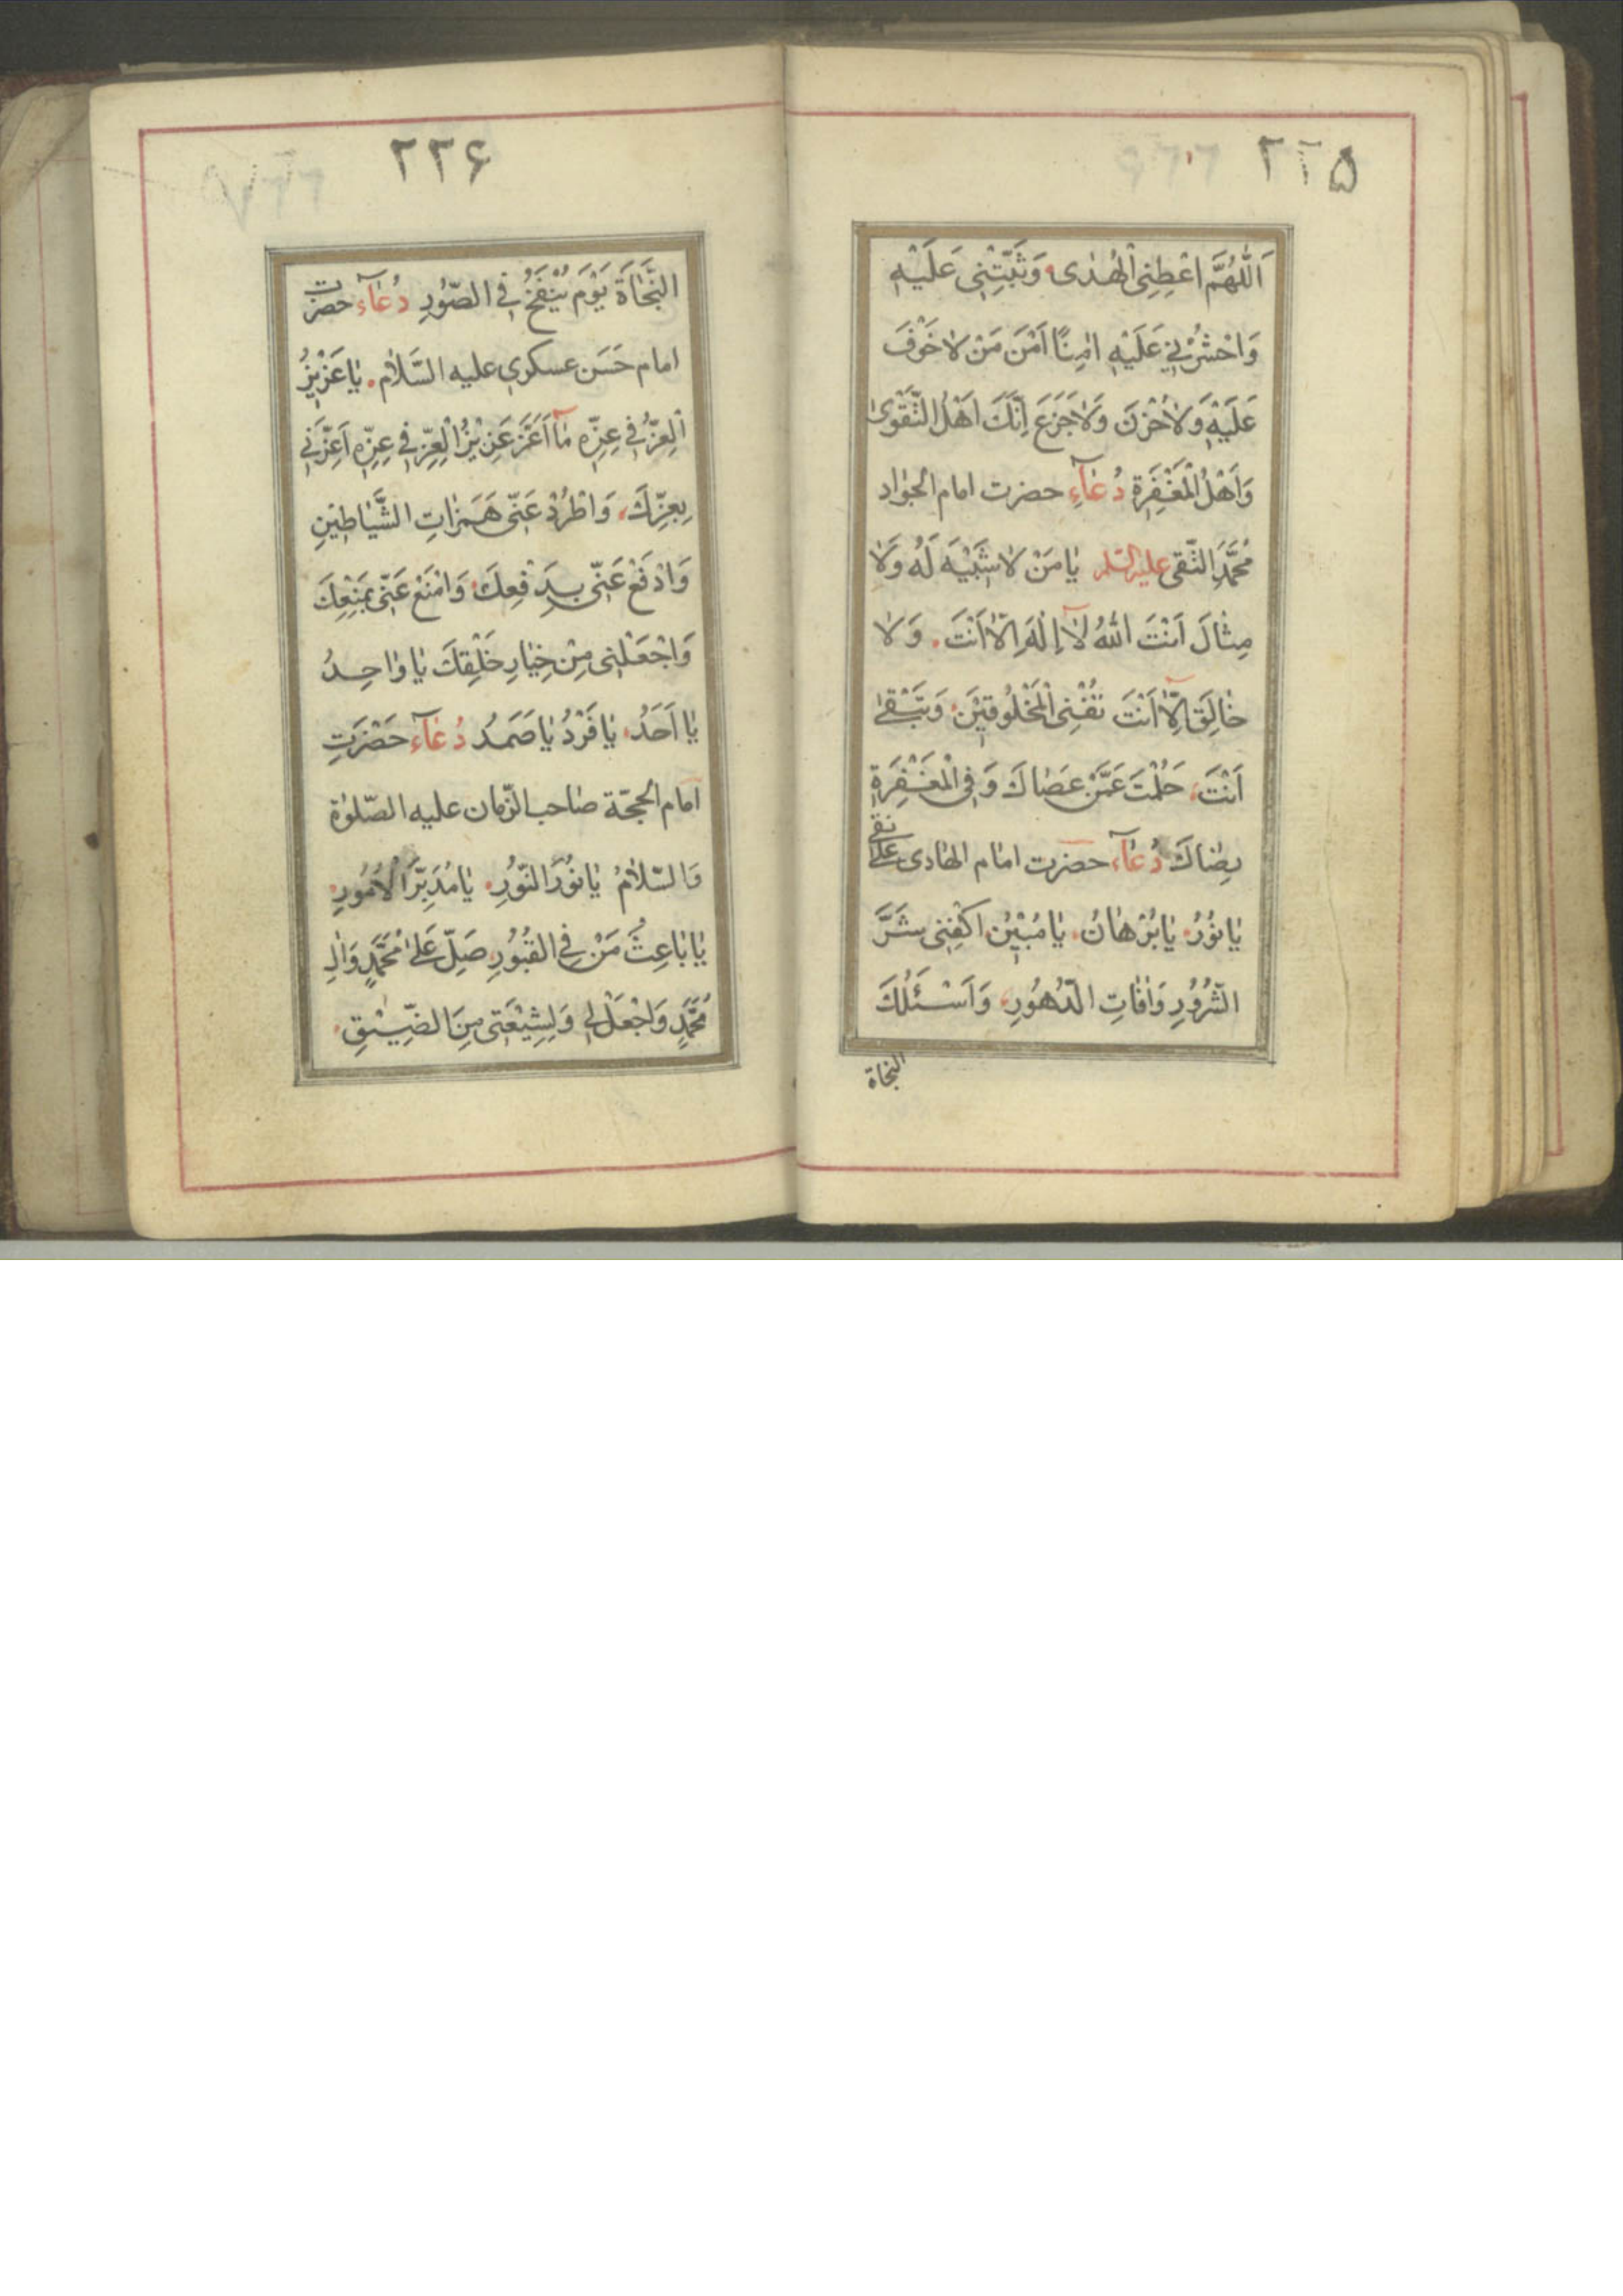 ۲۲۵
اَللّٰهُمَّ اعْطِنِى الْهُدٰى وَثَبِّتْنِى عَلَيْهِ
وَاحْشُرْنِي عَلَيْهِ اٰمِنًا اَمْنَ مَنْ لاٰ خَوْفَ
عَلَيْهِ وَلاٰ حُزْنَ وَلاٰ جَزَعَ اِنَّكَ اَهْلُ التَّقْوىٰ
وَاَهْلُ الْمَغْفِرَةِ دُعٰآءِ حضرت امام الجواد
مُحَمَّدِ التَّقى عليه السلم يٰا مَنْ لاٰ شَبْيَهَ لَهُ وَلاٰ
مِثٰالَ اَنْتَ اللّٰهُ لاٰ اِلٰهَ اِلّاٰ اَنْتَ. وَلاٰ
خٰالِقَ اِلّاٰ اَنْتَ تُفْنِى الْمَخْلُوقٖيْنَ وَتَبْقىٰ
اَنْتَ، حَلُمْتَ عَمَّنْ عَصٰاكَ وَفِى الْمَغْفِرَةِ
رِضٰاكَ دُعٰآءِ حضرت امٰام الهٰادى على نقى
يٰا نُوْرُ يٰا بُرْهٰانُ. يٰا مُبْيٖنُ اكْفِنِى شَرَّ
الشُّرُوُرِ وَاٰفٰاتِ الدُّهُوُرِ، وَاَسْئَلُكَ
النجاة
۲۲۶
النَّجٰاةَ يَوْمَ يُنْفَخُ فِى الصّوُرِ دُعٰآءِ حضرت
امام حَسَن عسكري عليه السَّلاٰم. يٰا عَزْيٖزُ
الْعِزِّ فِى عِزِّهِ مٰا اَعَزَّ عَزْيٖزُ الْعِزِّ فِى عِزِّهِ اَعِزَّنِي
بِعِزِّكَ، وَاطْرُدْ عَنّى هَمَزٰاتِ الشَّيٰاطٖيْنِ
وَادْفَعْ عَنّى بِدَفْعِكَ وَامْنَعْ عَنّى بِمَنْعِكَ
وَاجْعَلْنِى مِنْ خِيٰارِ خَلْقِكَ يٰا وٰاحِدُ
يٰا اَحَدُ. يٰا فَرْدُ يٰا صَمَدُ دُعٰآءِ حَضْرَتِ
امٰام الحجّة صٰاحب الزّمان عليه الصّلوٰة
وَالسّلاٰمُ يٰا نوُرَ النّوُرِ. يٰا مُدَبِّرَ الْاُمُورِ.
يٰا بٰاعِثَ مَنْ فِى القُبُوُرِ صَلِّ عَلىٰ مُحَمَّدٍ وَاٰلِ
مُحَمَّدٍ وَاجْعَلْ لٖى وَلِشِيْعَتٖى مِنَ الضّٖيْقِ